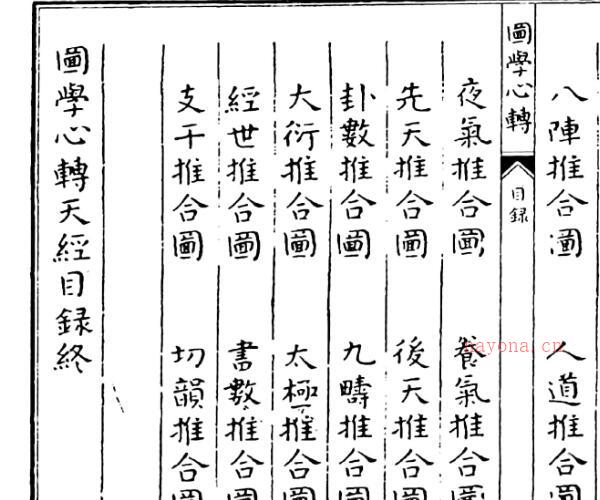 八陣推合圖　人道推合圖
圖學心轉　目録
夜氣推合圖　養氣推合圖
先天推合圖　後天推合圖
卦數推合圖　九疇推合圖
大衍推合圖　太極推合圖
經世推合圖　書數推合圖
支干推合圖　切韻推合圖
圖學心轉天經目録終
nayona.cn